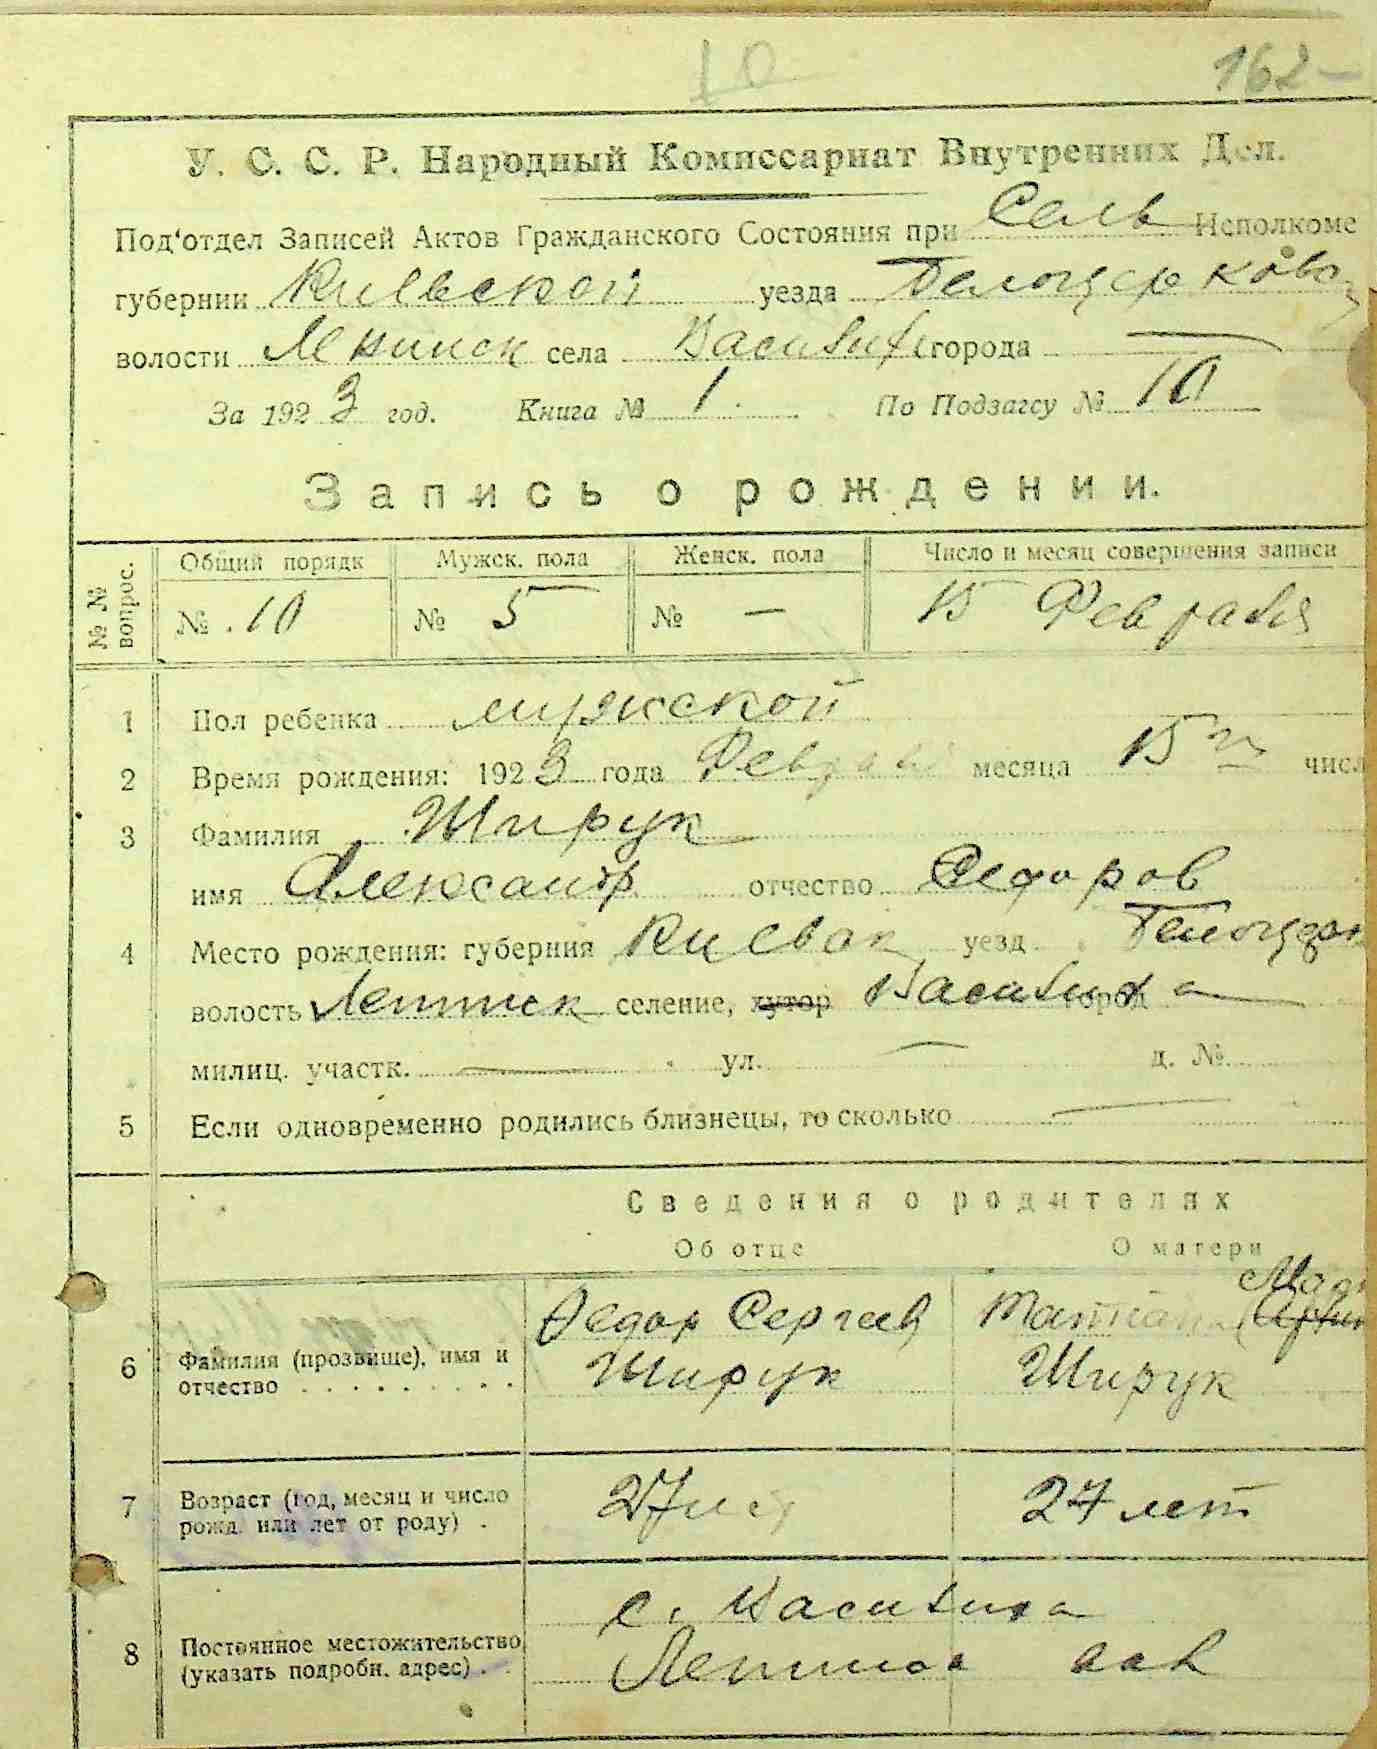 10
162
У. С. С. Р. Народный Комиссариат Внутренних Дел.
Под'отдел Записей Актов Гражданского Состояния при Сель Исполкоме
губернии Киевской уезда Белоцерковс
волости села города
За 1923 год. Книга № 1. По Подзагсу № 10
Запись о рождении.
№ № вопрос. Общий порядк Мужск. пола Женск. пола Число и месяц совершения записи
№ 10 № 5 № — 15 Февраля
1 Пол ребенка мужской
2 Время рождения: 1923 года Февраля месяца 15 числ
3 Фамилия Ширук
имя Александр отчество Федоров
4 Место рождения: губерния Киевск уезд Белоцерк
волость селение, хутор Василиха город
милиц. участк. — ул. — д. №
5 Если одновременно родились близнецы, то сколько —
Сведения о родителях
Об отце О матери
Федор Сергеев Татиана
6 Фамилия (прозвище), имя и Ширук Ширук
отчество . . . . . . . . .
7 Возраст (год, месяц и число 27 лет 24 лет
рожд. или лет от роду) .
с. Василиха
8 Постоянное местожительство
(указать подробн. адрес) . . вол